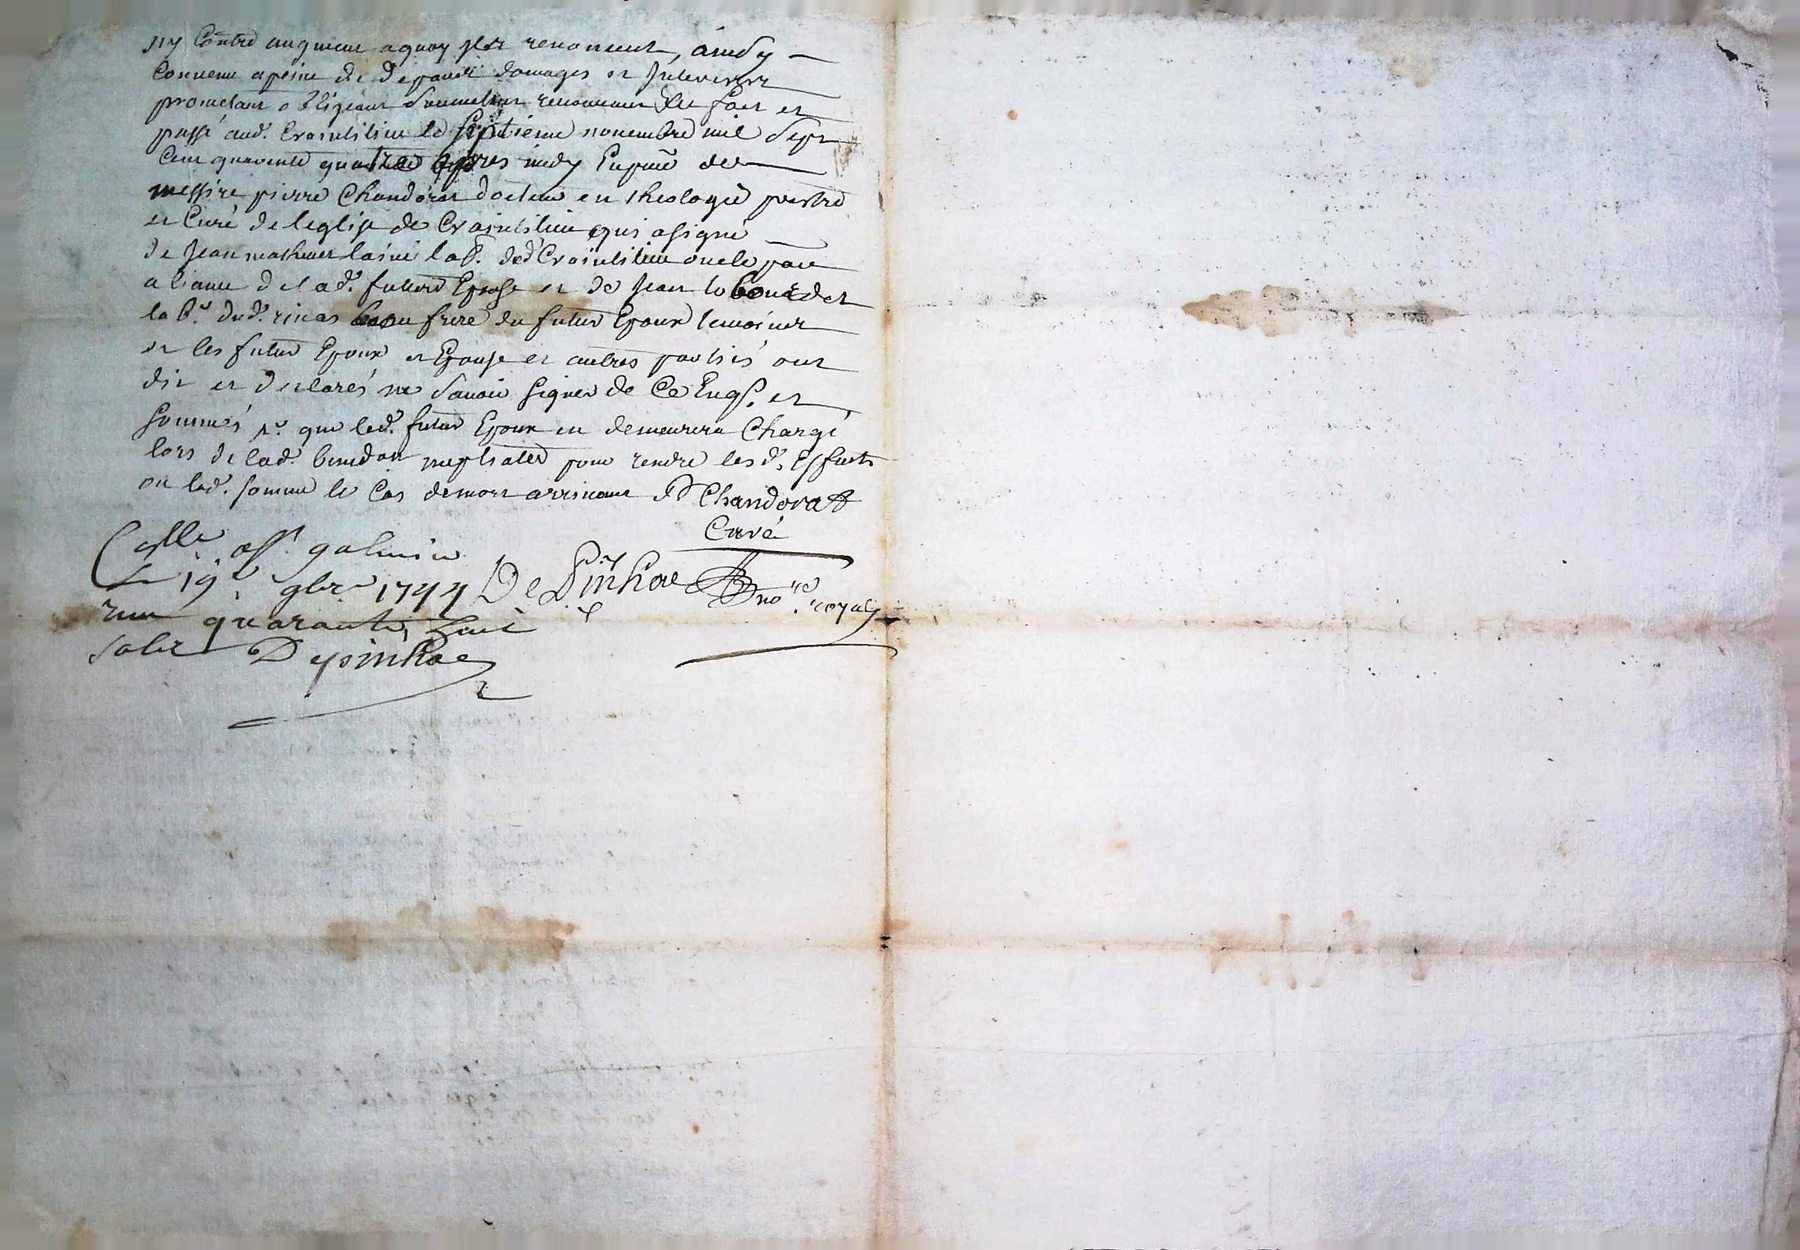 ny contre augment a quoy ils renoncent, ainsy
convenu a peine de depans domages et interests
prometant obligeant soumettant renonceant &c fait et
passé aud. Craintilieu le septieme novembre mil sept
cent quarente quatre apres midy en pnce de
messire pierre Chandorat docteur en theologie prestre
et Curé de leglise de Craintilieu qui a signé
de Jean mathieu laine lab. dud Craintilieu oncle par
aliance de lad. future Epouse et de Jean
lab.r dud. rivas beau frere du futur Epoux temoins
et les futur Epoux et Epouse et autres partiés ont
dit et declarés ne savoir signer de ce Enq. et
sommés que led. futur Epoux en demeurera Chargé
lors de lad. benedon nuptialle pour rendre les d. Effaits
ou lad. somme le cas de mort arrivant P Chandorat
Curé
Collé a St galmier
Le 19e 9bre 1744 DePinhac no.re royal
reçu quarante huit
sols DePinhac